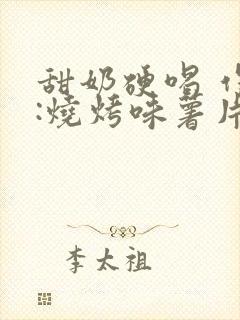 甜奶硬唱
:燒烤味薯片
李太祖